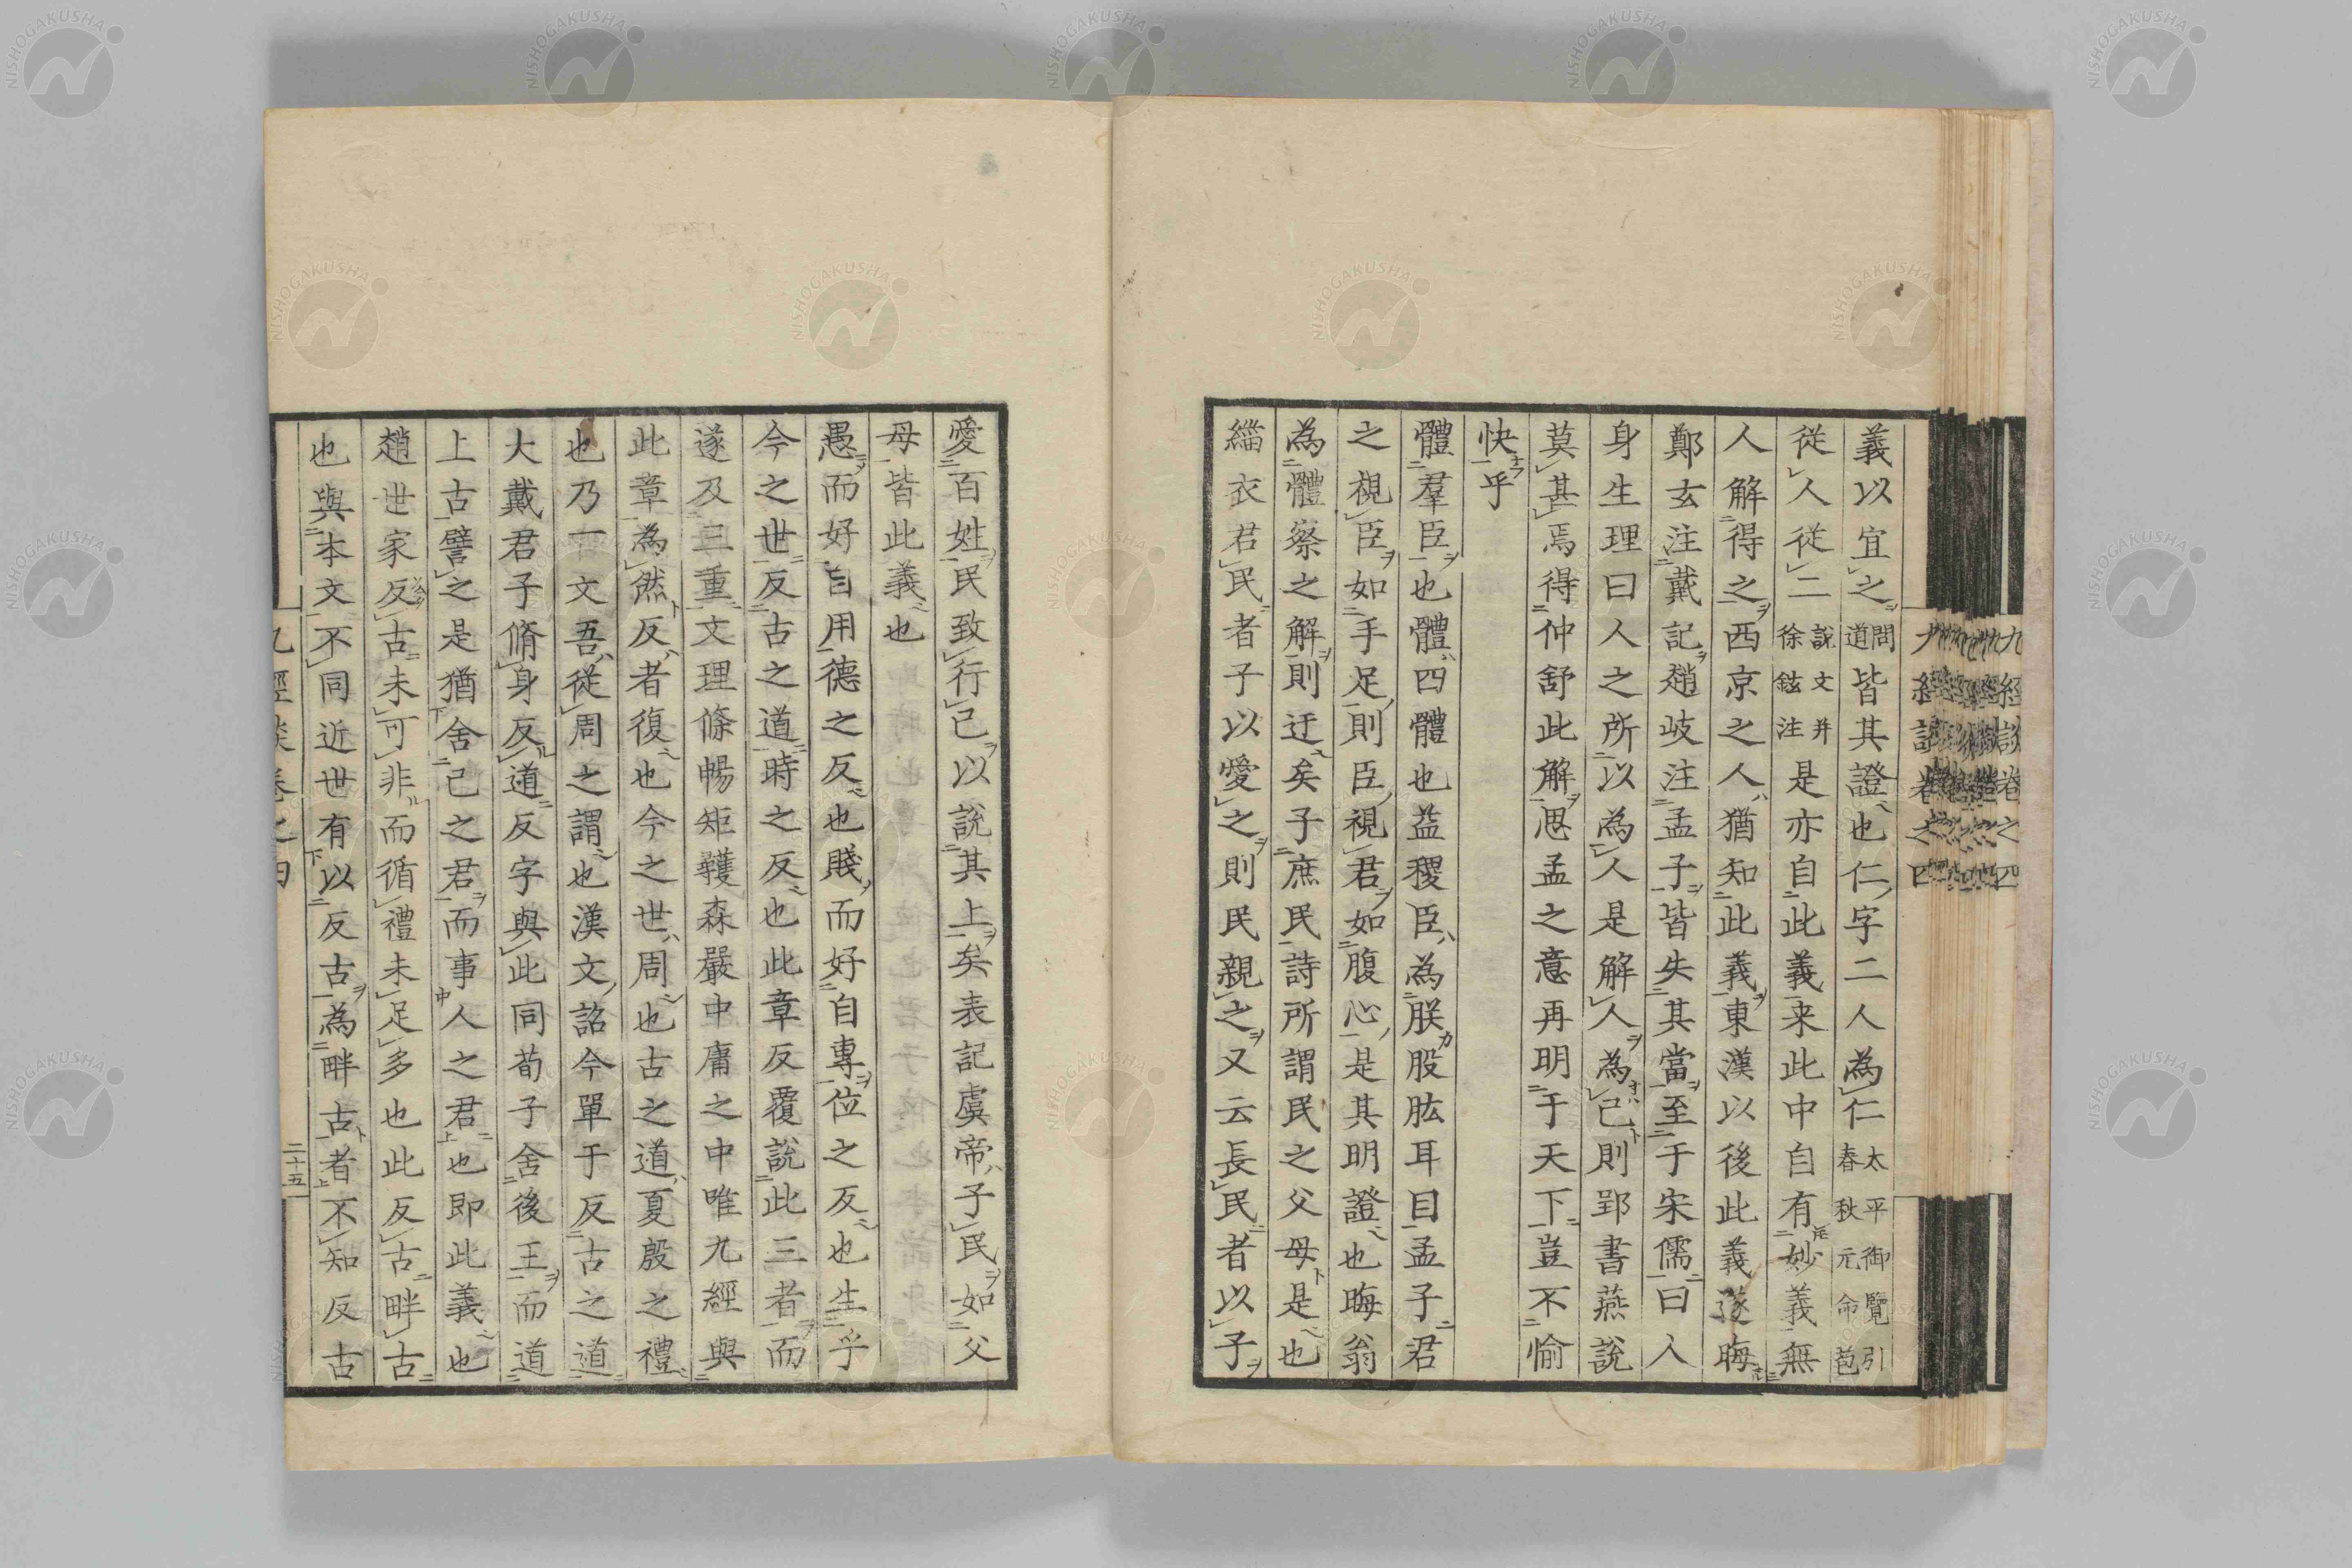 義以宜之問道皆其證也仁字二人為仁太平御覽引春秋元命苞
從人從二說文并徐鉉注是亦自此義来此中自有妙義無
人解得之西京之人猶知此義東漢以後此義遂晦
鄭玄注戴記趙岐注孟子皆失其當至于宋儒曰人
身生理曰人之所以為人是解人為己則郢書燕說
莫甚焉得仲舒此解思孟之意再明于天下豈不愉
快乎
體羣臣也體四體也益稷臣為朕股肱耳目孟子君
之視臣如手足則臣視君如腹心是其明證也晦翁
為體察之解則迂矣子庶民詩所謂民之父母是也
緇衣君民者子以愛之則民親之又云長民者以子
愛百姓民致行己以說其上矣表記虞帝子民如父
母皆此義也
愚而好自用德之反也賤而好自專位之反也生乎
今之世反古之道時之反也此章反覆說此三者而
遂及三重文理條暢矩矱森嚴中庸之中唯九經與
此章為然反者復也今之世周也古之道夏殷之禮
也乃一文吾從周之謂也漢文詔今單于反古之道
大戴君子脩身反道反字與此同荀子舍後王而道
上古譬之是猶舍己之君而事人之君也即此義也
趙世家反古未可非而循禮未足多也此反古畔古
也與本文不同近世有以反古為畔古者不知反古
九經談卷之四
二十五
NISHOGAKUSHA